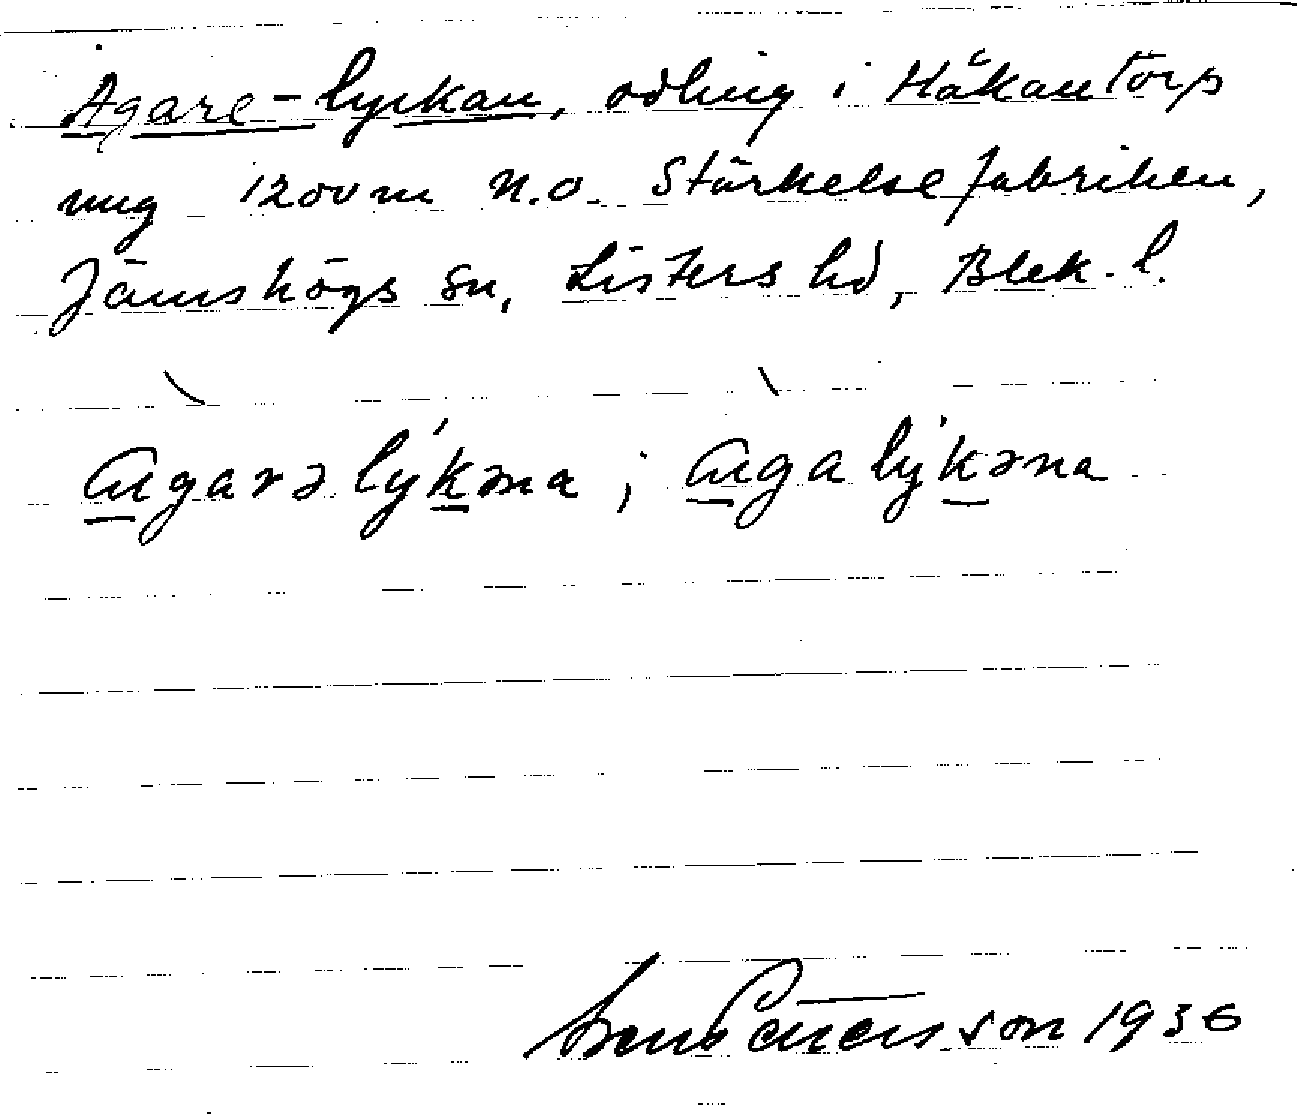 Agare-lyckan, odling i Håkantorp
ung 1200 m N.O. Stärkelsefabriken,
Jämshögs sn, Listers hd, Blek. l.
agarə lykəna ; aga lykəna
Sven Petersson 1936